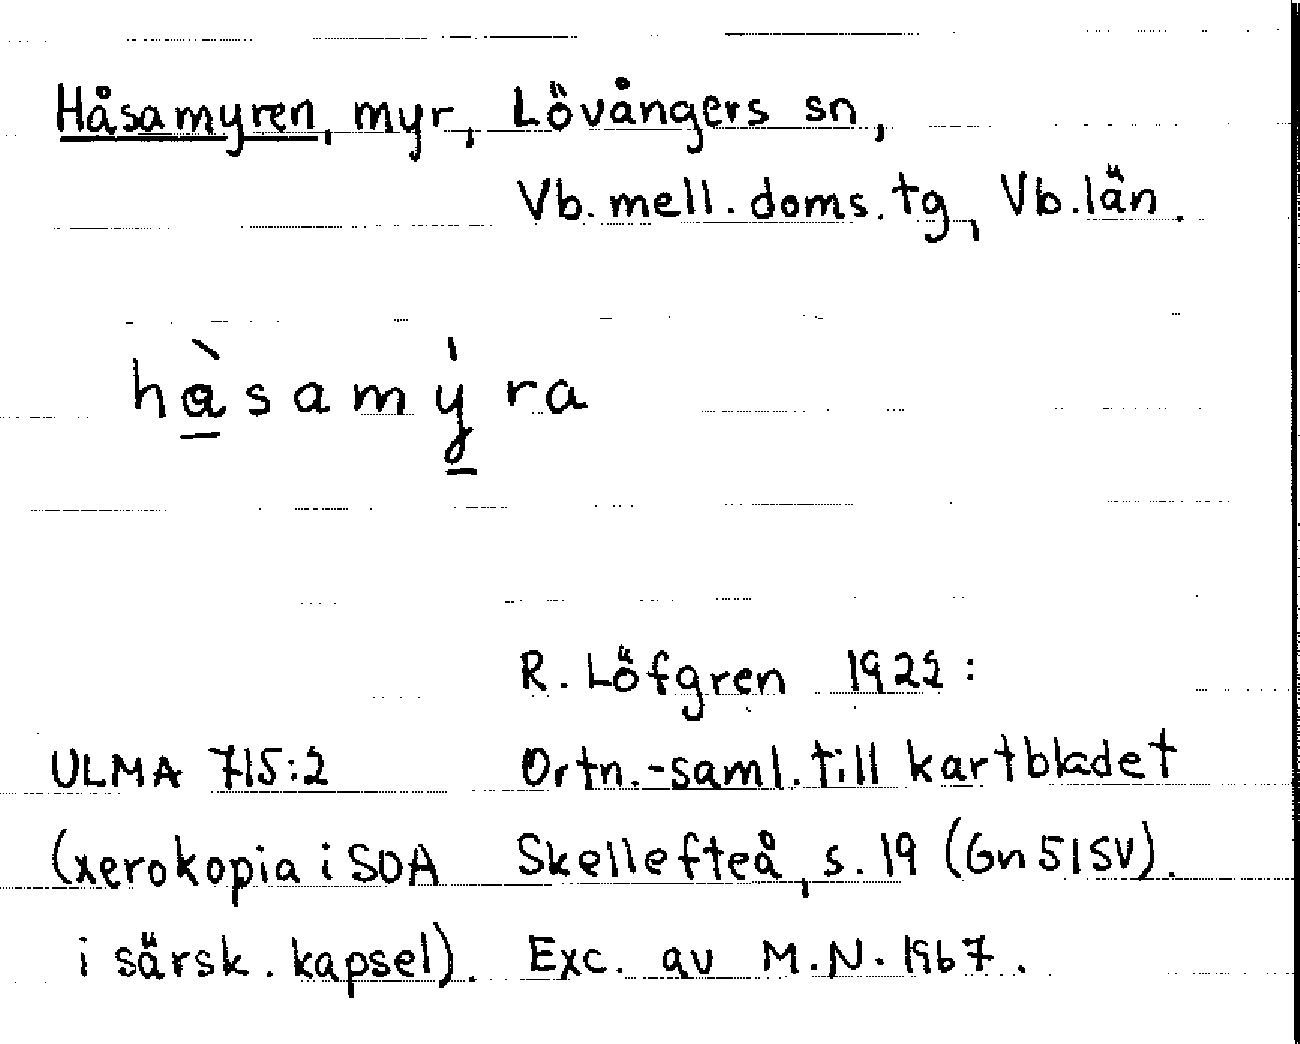 Håsamyren, myr, Lövångers sn,
Vb. mell. doms. tg, Vb. län.
hàsamýra
R. Löfgren 1922:
ULMA 715:2 Ortn.-saml. till kartbladet
(xerokopia i SOA Skellefteå, s. 19 (Gn 51SV).
i särsk. kapsel). Exc. av M.N. 1967.